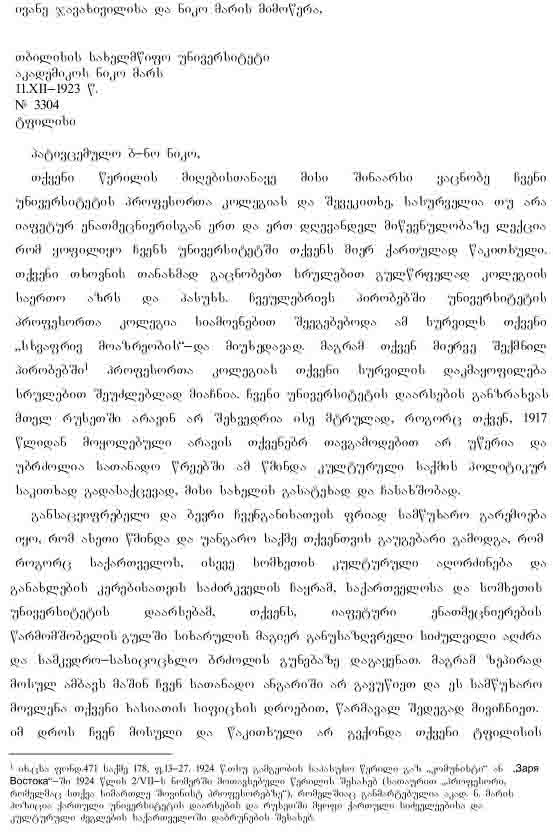 ივანე ჯავახიშვილისა და ნიკო მარის მიმოწერა,
თბილისის სახელმწიფო უნივერსიტეტი
აკადემიკოს ნიკო მარს
11.XII–1923 წ.
№ 3304
ტფილისი
პატივცემულო ბ–ნო ნიკო,
თქვენი წერილის მიღებისთანავე მისი შინაარსი ვაცნობე ჩვენი
უნივერსიტეტის პროფესორთა კოლეგიას და შევეკითხე, სასურველია თუ არა
იაფეტურ ენათმეცნიერისგან ერთ და ერთ დღევანდელ მიწვენულობაზე ლექცია
რომ ყოფილიყო ჩვენს უნივერსიტეტში თქვენს მიერ ქართულად წაკითხული.
თქვენი თხოვნის თანახმად გაცნობებთ სრულებით გულწრფელად კოლეგიის
საერთო აზრს და პასუხს. ჩვეულებრივს პირობებში უნივერსიტეტის
პროფესორთა კოლეგია სიამოვნებით შეეგებებოდა ამ სურვილს თქვენი
„სხვაფრივ მოაზრეობის“–და მიუხედავად. მაგრამ თქვენ მიერვე შექმნილ
პირობებში¹ პროფესორთა კოლეგიას თქვენი სურვილის დაკმაყოფილება
სრულებით შეუძლებლად მიაჩნია. ჩვენი უნივერსიტეტის დაარსების განზრახვას
მთელ რუსეთში არავინ არ შეხვედრია ისე მტრულად, როგორც თქვენ, 1917
წლიდან მოყოლებული არავის თქვენებრ თავგამოდებით არ უწერია და
უბრძოლია სათანადო წრეებში ამ წმინდა კულტურული საქმის პოლიტიკურ
საკითხად გადასაქცევად, მისი სახელის გასატეხად და ჩასახშობად.
განსაცვიფრებელი და ბევრი ჩვენგანისათვის ფრიად სამწუხარო გარემოება
იყო, რომ ასეთი წმინდა და უანგარო საქმე თქვენთვის გაუგებარი გამოდგა, რომ
როგორც საქართველოს, ისევე სომხეთის კულტურული აღორძინება და
განახლების კერებისათვის საძირკველის ჩაყრამ, საქართველოსა და სომხეთის
უნივერსიტეტის დაარსებამ, თქვენს, იაფეტური ენათმეცნიერების
წარმომშობელის გულში სიხარულის მაგიერ განუსაზღვრელი სიძულვილი აღძრა
და სამკვდრო–სასიცოცხლო ბრძოლის გუნებაზე დაგაყენათ. მაგრამ ზეპირად
მოსულ ამბავს მაშინ ჩვენ სათანადო ანგარიში არ გავუწიეთ და ეს სამწუხარო
მოვლენა თქვენი ხასიათის სიფიცხის დროებით, წარმავალ შედეგად მივიჩნიეთ.
იმ დროს ჩვენ მოსული და წაკითხული არ გვქონდა თქვენი ტფილისის
¹ იხ.ცსა ფონდ.471 საქმე 178, ფ.13–27. 1924 წ.თსუ გამგეობის საპასუხო წერილი გაზ „კომუნისტი“ ან „Заря
Востока“–ში 1924 წლის 2/VII–ს ნომერში მოთავსებული წერილის შესახებ (სათაურით „პროფესორი,
რომელმაც სთქვა სიმართლე შოვინისტ პროფესორებზე“), რომელშიაც განმარტებულია აკად. ნ. მარის
პოზიცია ქართული უნივერსიტეტის დაარსების და რუსეთში მყოფი ქართული სიძველეებისა და
კულტურული ძეგლების საქართველოში დაბრუნების შესახებ.